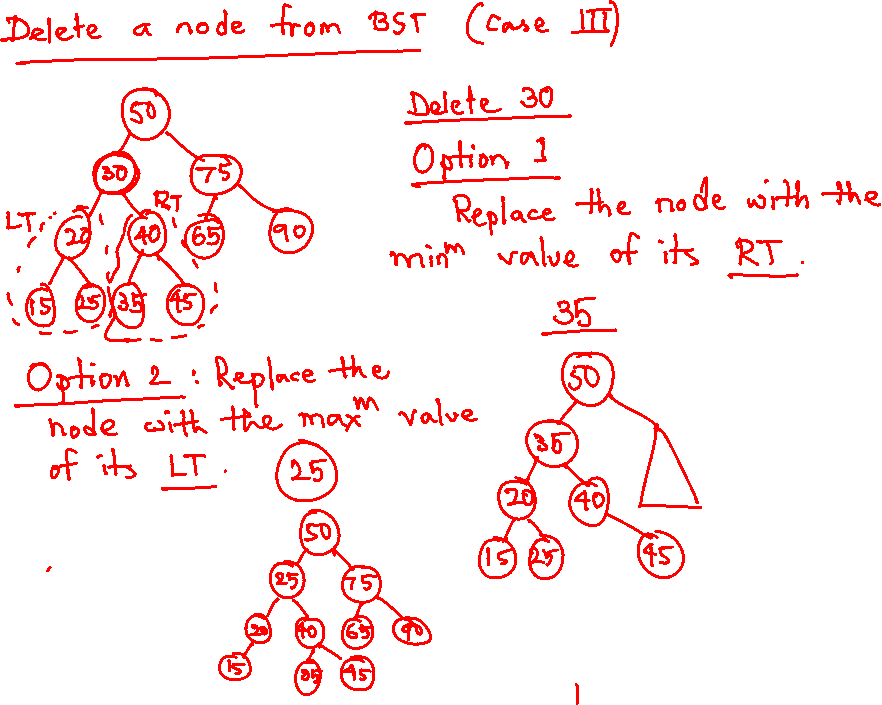 Delete a node from BST (Case III)
50
30 75
LT RT
20 40 65 90
15 25 35 45
Delete 30
Option 1
Replace the node with the
minᵐ value of its RT.
35
50
35
20 40
15 25 45
Option 2 : Replace the
node with the maxᵐ value
of its LT.
25
50
25 75
20 40 65 90
15 35 45